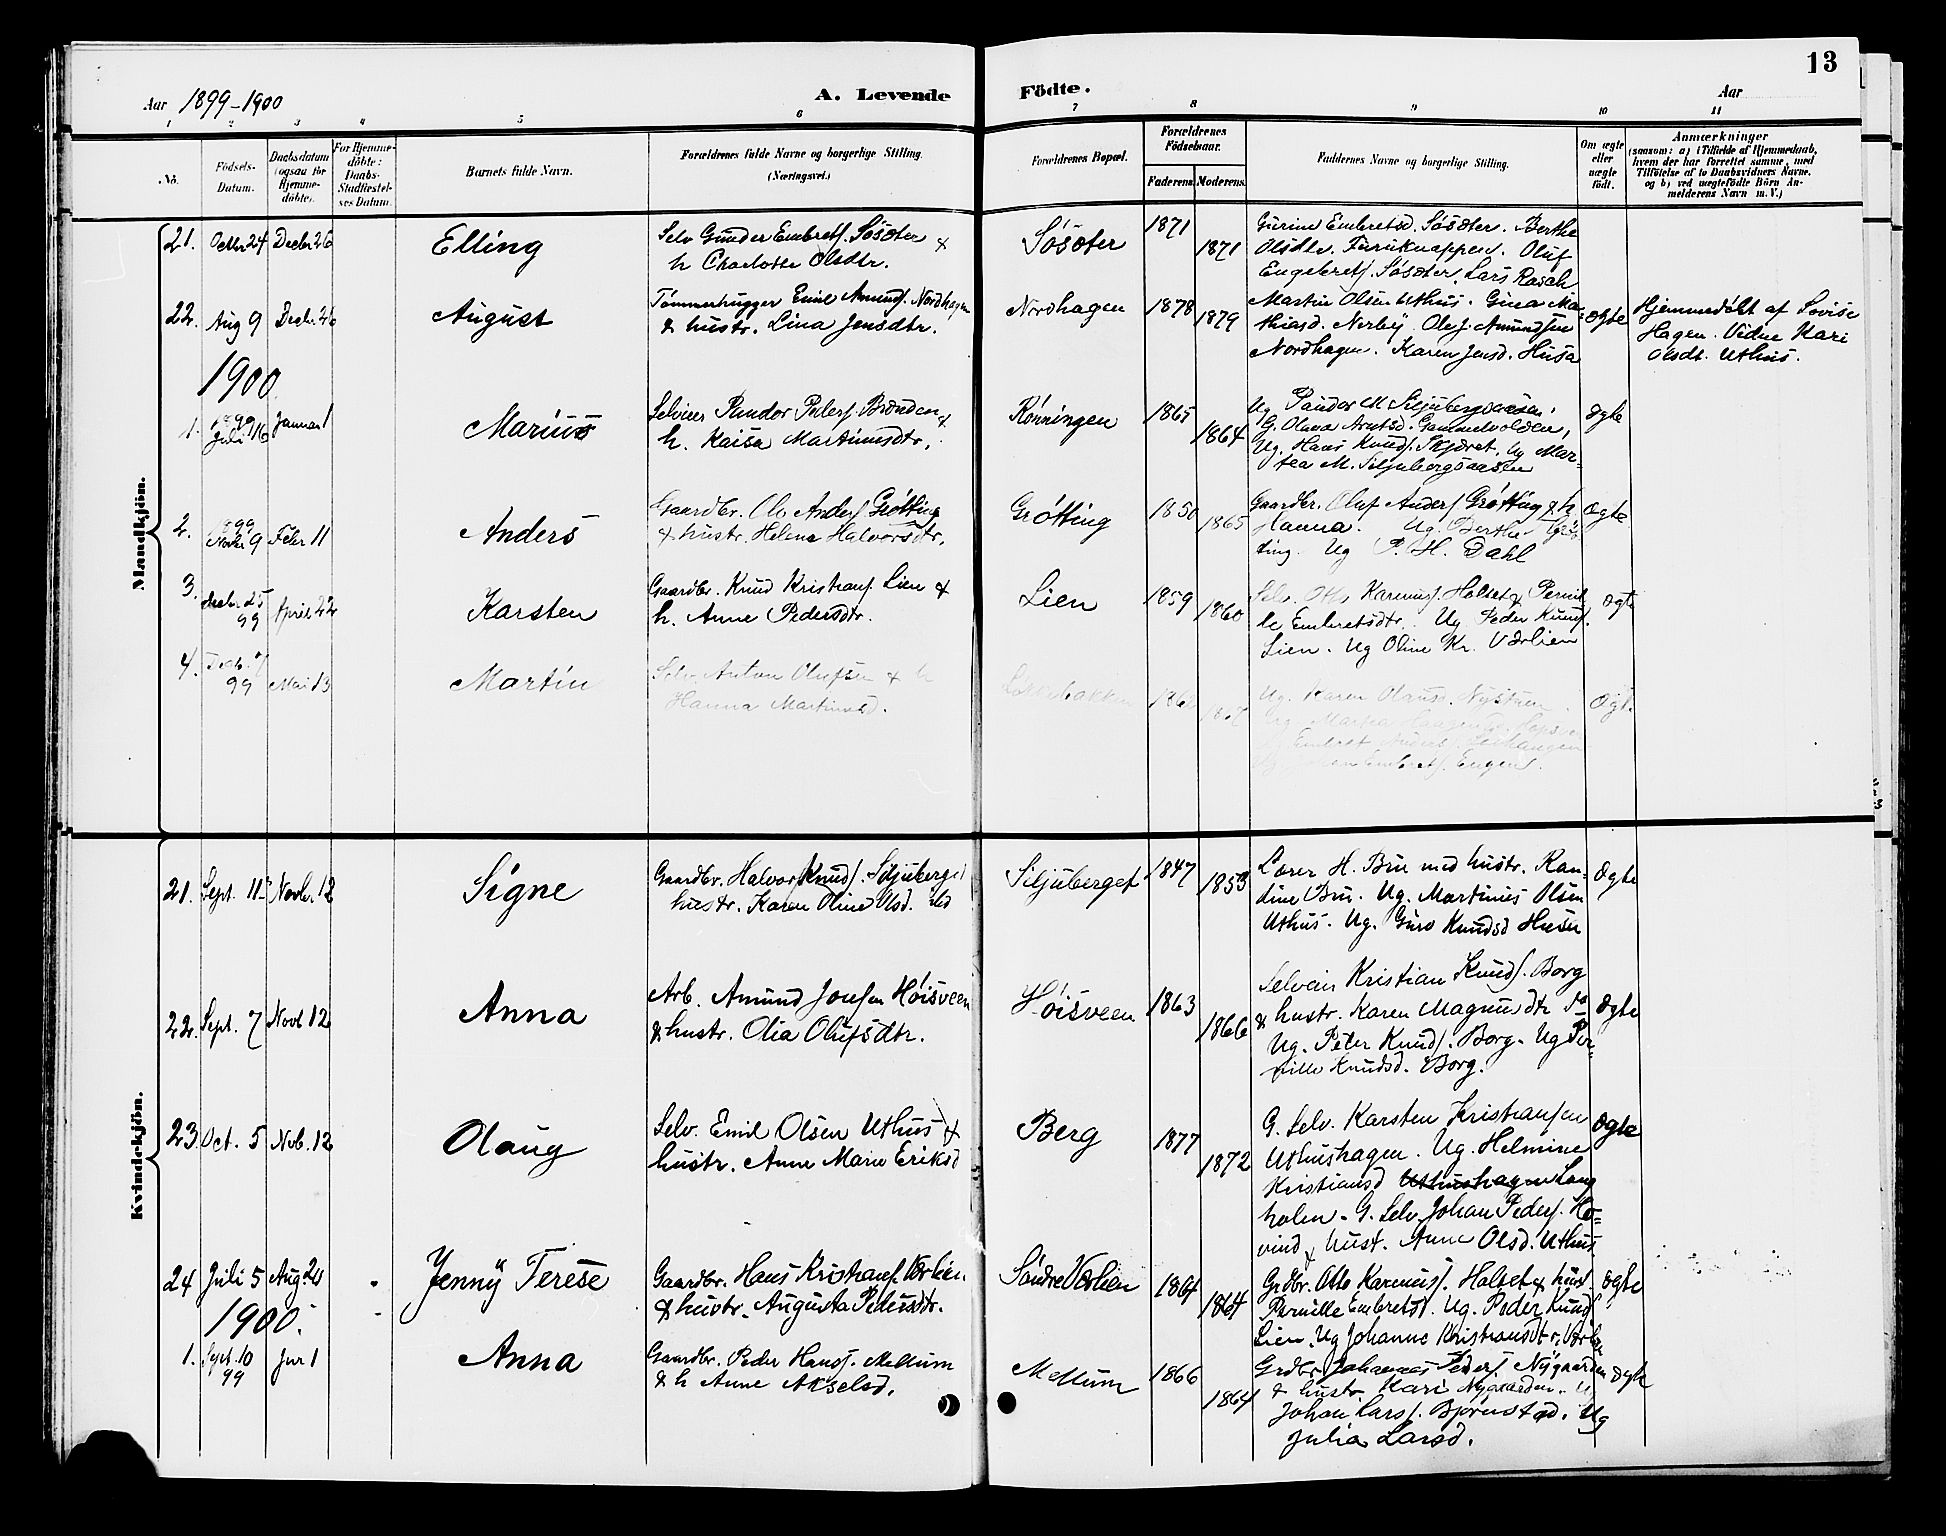 13
Aar 1899-1900
A. Levende Födte.
Aar
1 2 3 4 5 6 7 8 9 10 11
No.
Födsels-Datum.
Daabsdatum (ogsaa for Hjemme-döbte).
For Hjemme-döbte: Daabs-Stadfæstel-ses Datum.
Barnets fulde Navn.
Forældrenes fulde Navne og borgerlige Stilling.
(Næringsvei.)
Forældrenes Bopæl.
Forældrenes Födselsaar.
Faderens. Moderens.
Faddernes Navne og borgerlige Stilling.
Om ægte eller uægte födt.
Anmærkninger
(saasom: a) i Tilfælde af Hjemmedaab,
hvem der har forrettet samme, med
Tilföielse af to Daabsvidners Navne,
og b) ved uægtefödte Börn An-
melderens Navn m. V.)
Mandkjön.
21. Octbr 24 Decbr 26 Elling
Selv Gunder Embrets. Söséter &
h Charlotte Olsdtr.
Söséter 1871 1871
Gurine Embretsd. Söséter. Berthe
Olsdtr. Furuknappen. Oluf
Engebrets. Söséter. Lars Rasch
22. Aug 9 Decbr 26 August
Tømmerhugger Emil Amunds. Nordhagen
& hustr. Lina Jensdtr.
Nordhagen 1878 1879
Martin Olsen Uthus. Gina Ma-
thiasd. Nerby. Ole Amundsen
Nordhagen. Karen Jensd. Husa
ægte
Hjemmedøbt af Lovise
Hagen. Vidne Kari
Olsdt. Uthus.
1900
1. 1899 Juli 16 Januar 1 Marius
Selveier Pauder Peders. Brænden &
h. Kaisa Martinusdtr.
Rønningen 1865 1864
Ug Pauder M Siljubergsaasen.
G. Olava Arntsd. Gammelvolden,
Ug. Hans Knuds. Skjæret. Ug Mar-
tea M. Siljubergsaasen
ægte
2. 1899 Novbr 9 Febr 11 Anders
Gaardbr. Ole Anders Grøtting
& hustr. Helene Halvorsdtr.
Grøtting 1850 1865
Gaardbr. Oluf Anders Grøtting & h
Hanna. Ug. Berthe Grøt-
ting. Ug P. H. Dahl
ægte
3. Decbr. 25 99 April 22 Karsten
Gaardbr. Knud Kristians. Lien &
h. Anne Pedersdtr.
Lien 1859 1860
Selv. Otto Karenus. Holset & Pernil-
le Embretsdtr. Ug Peder Knuds.
Lien. Ug Oline Kr. Værlien
ægte
4. 99 Mai 13 Martin
Selv. Anton Olufsen & h
Hanna Martinusd.
1862
Ug. Karen Olausd. Nystuen
Embret Anders.
Embrets. Engen
ægt.
Kvindekjön.
21. Sept. 11 Novbr 12 Signe
Gaardbr. Halvor Knuds. Siljuberget
hustr. Karen Oline Olsd.
Siljuberget 1847 1853
Lærer H. Bru med hustr. Ran-
dine Bru. Ug. Martinius Olsen
Uthus. Ug. Guro Knudsd Husu
ægte
22. Sept. 7 Novb 12 Anna
Arb. Amund Jonsen Høisveen
& hustr. Olia Olufsdtr.
Høisveen 1863 1866
Selveier Kristian Knuds. Borg
& hustr. Karen Magnudtr
Ug. Peter Knuds. Borg. Ug Per-
nille Knudsd. Borg.
ægte
23. Oct. 5 Nvb. 12 Olaug
Selv. Emil Olsen Uthus &
hustr. Anne Marie Eriksd
Berg 1877 1872
G. Selv. Karsten Kristiansen
Uthushagen. Ug. Helmine
Kristiansd Uthushagen Lang
holen. G. Selv. Johan Peders. Ho-
vind & hust. Anne Olsd. Uthus
ægte
24 Juli 5 Aug. 20 Jenny Terese
Gaardbr. Hans Kristians. Værlien
& hustr. Augusta Pedersdtr.
Søndre Værlien 1864 1864
Grdbr. Otto Karenus. Holset & hust
Pernille Embretsd. Ug. Peder Knuds
Lien. Ug Johanne Kristiansdtr. Værlien
ægte
1900.
1. Sept. 10 99 Jnr 1 Anna
Gaardbr. Peder Hanss. Mellum
& h Anne Akselsd.
Mellum 1866 1864
Grdbr. Johannes Peders. Nygaarden
& hustr. Kari Nygaarden. U
Johan Lars. Bjørnstad. Ug
Julia Larsd.
ægte